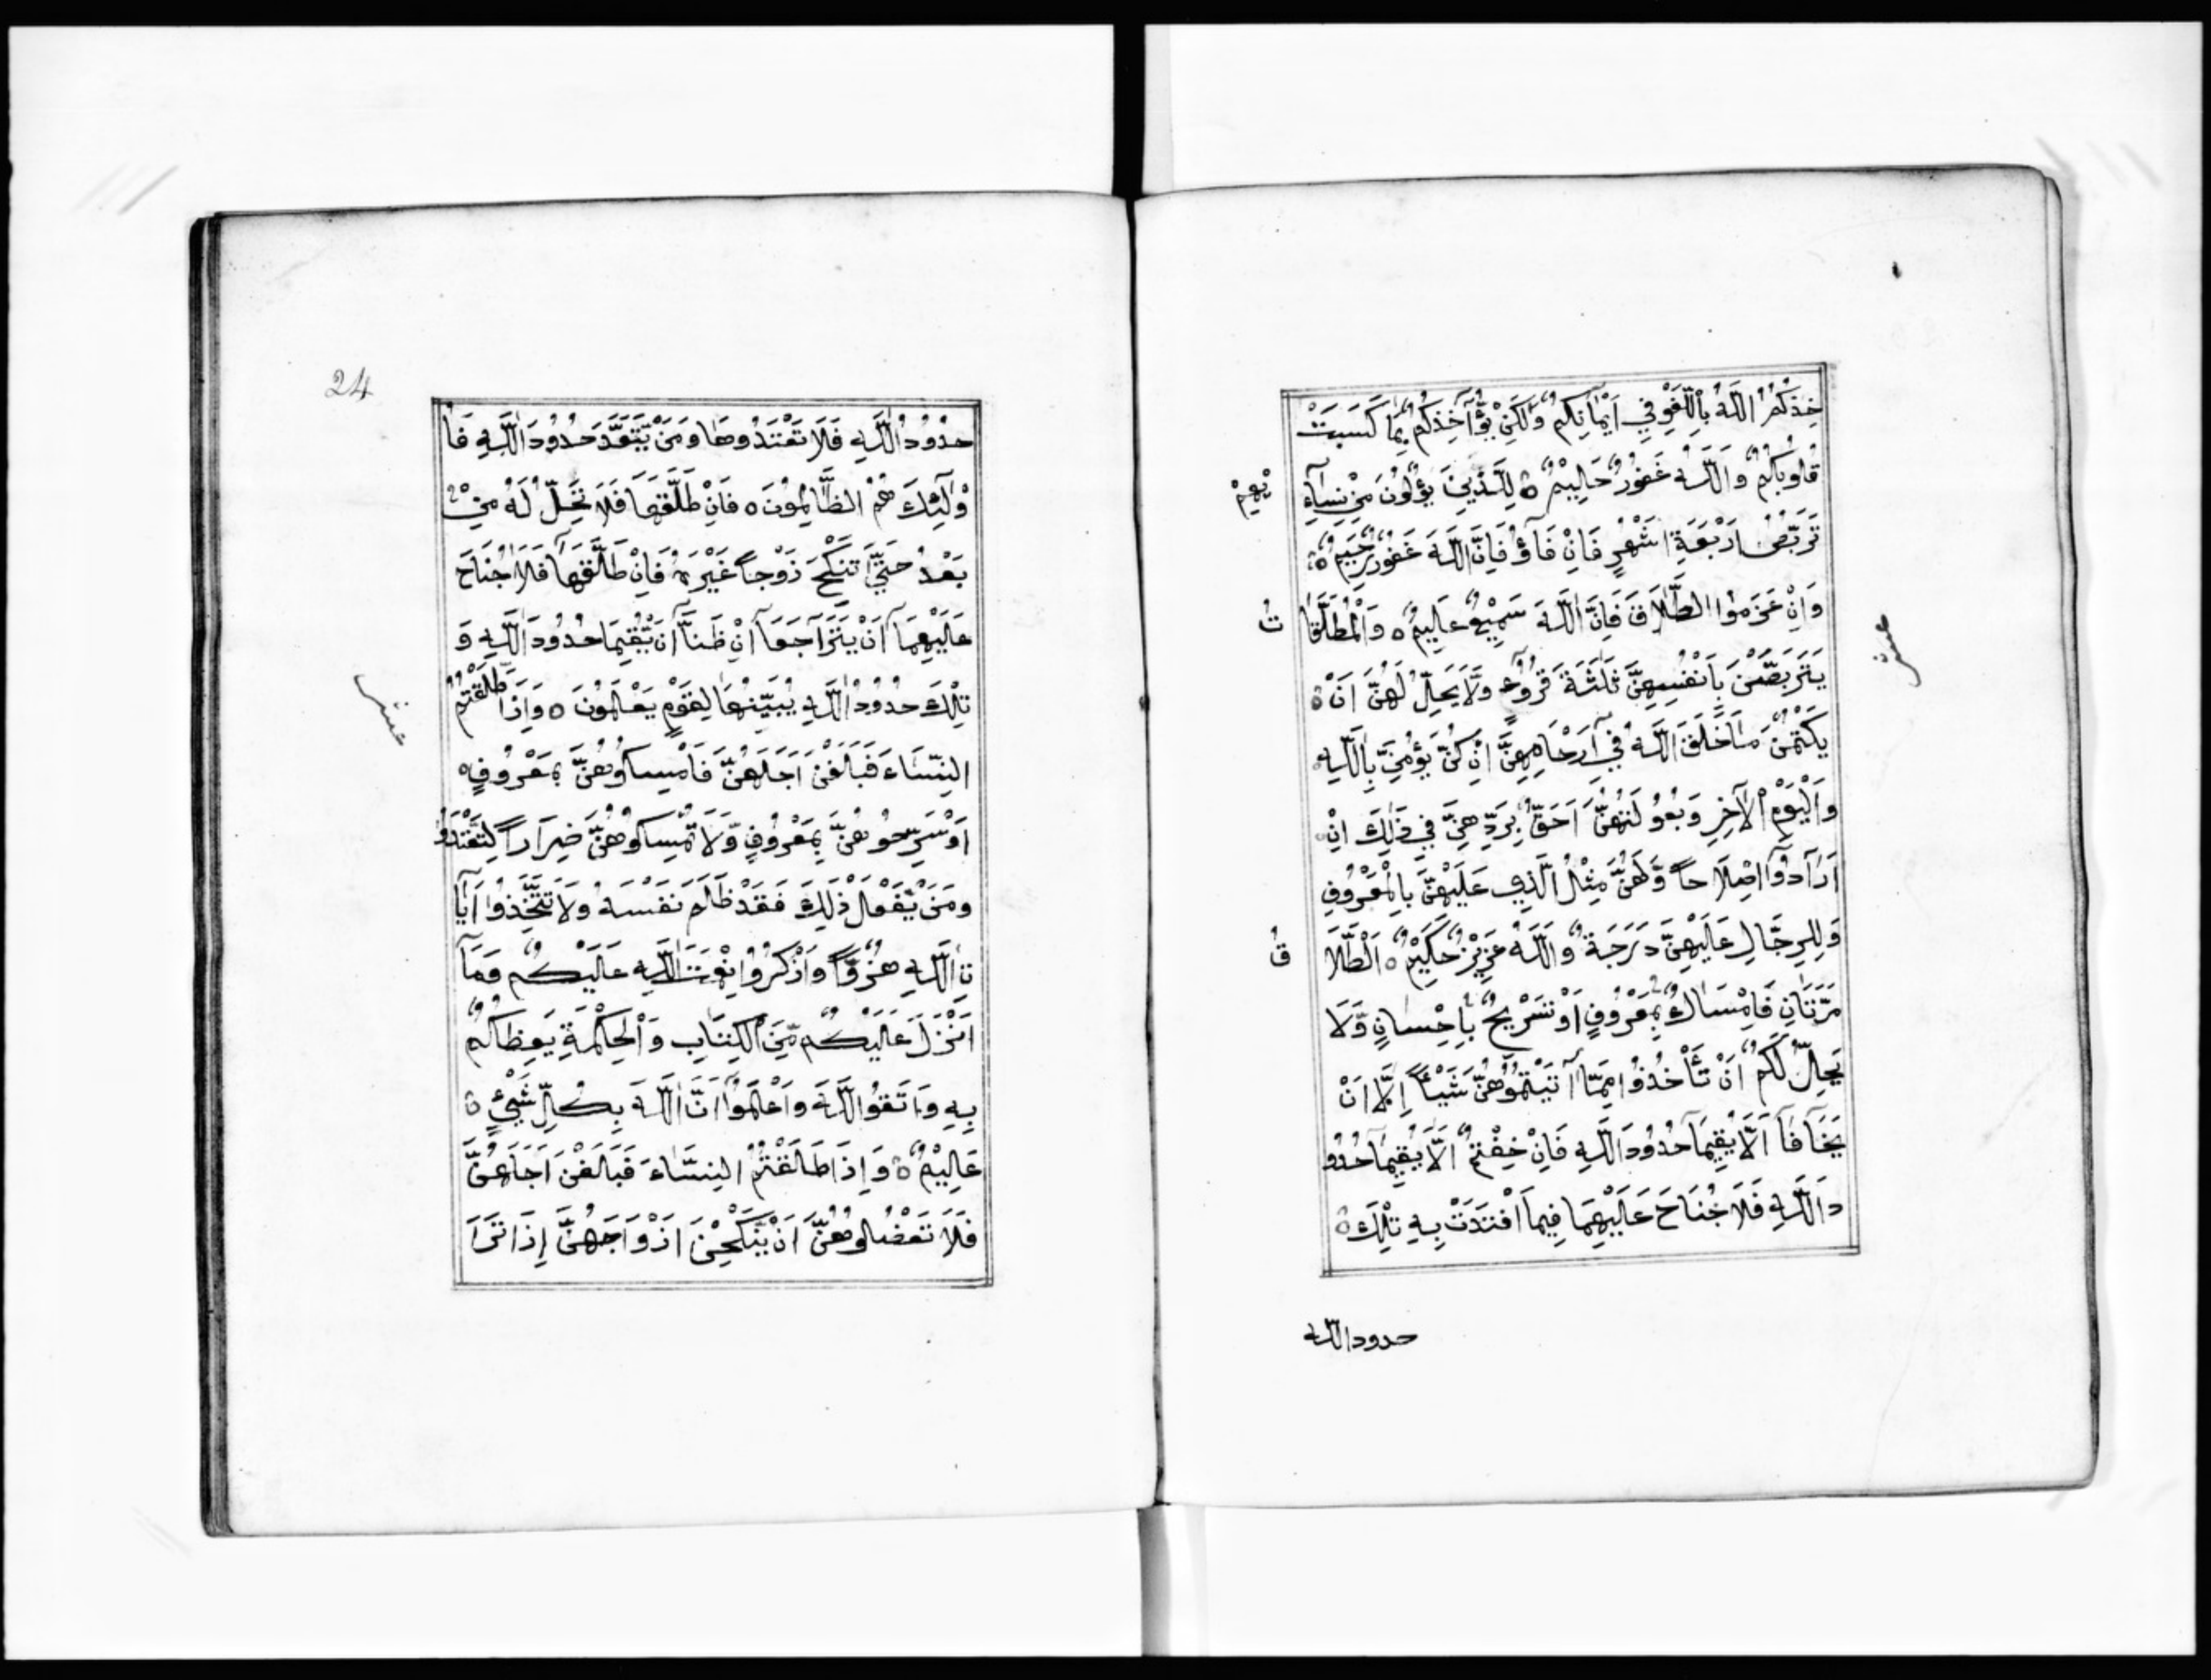 خِذُكُمُ اللَّهُ بِاللَّغْوِ فِي أَيْمَانِكُمْ وَلَكِنْ يُؤَاخِذُكُمْ بِمَا كَسَبَتْ
قُلُوبُكُمْ وَاللَّهُ غَفُورٌ حَلِيمٌ ه لِلَّذِينَ يُؤْلُونَ مِنْ نِسَآءِ
ئِهِمْ
تَرَبُّصُ أَرْبَعَةِ أَشْهُرٍ فَإِنْ فَآؤُ فَإِنَّ اللَّهَ غَفُورٌ رَحِيمٌ ه
وَإِنْ عَزَمُوا الطَّلَاقَ فَإِنَّ اللَّهَ سَمِيعٌ عَلِيمٌ ه وَالْمُطَلَّقَا
تُ
يَتَرَبَّصْنَ بِأَنْفُسِهِنَّ ثَلَثَةَ قُرُوءٍ وَلَا يَحِلُّ لَهُنَّ أَنْ ه
عشر
يَكْتُمْنَ مَا خَلَقَ اللَّهُ فِي أَرْحَامِهِنَّ إِنْ كُنَّ يُؤْمِنَّ بِاللَّهِ
وَالْيَوْمِ الْآخِرِ وَبُعُولَتُهُنَّ أَحَقُّ بِرَدِّهِنَّ فِي ذَلِكَ إِنْ
أَرَادُوآ إِصْلَاحاً وَلَهُنَّ مِثْلُ الَّذِي عَلَيْهِنَّ بِالْمَعْرُوفِ
وَلِلرِّجَالِ عَلَيْهِنَّ دَرَجَةٌ وَاللَّهُ عَزِيزٌ حَكِيمٌ ه الطَّلَا
قُ
مَرَّتَانِ فَإِمْسَاكٌ بِمَعْرُوفٍ أَوْ تَسْرِيحٌ بِإِحْسَانٍ وَلَا
يَحِلُّ لَكُمْ أَنْ تَأْخُذُوا مِمَّا آتَيْتُمُوهُنَّ شَيْئاً إِلَّا أَنْ
يَخَافَآ أَلَّا يُقِيمَا حُدُودَ اللَّهِ فَإِنْ خِفْتُمْ أَلَّا يُقِيمَا حُدُو
دَ اللَّهِ فَلَا جُنَاحَ عَلَيْهِمَا فِيمَا افْتَدَتْ بِهِ تِلْكَ ه
حدود الله
24
حُدُودُ اللَّهِ فَلَا تَعْتَدُوهَا وَمَنْ يَتَعَدَّ حُدُودَ اللَّهِ فَأُ
وْلَئِكَ هُمُ الظَّالِمُونَ ه فَإِنْ طَلَّقَهَا فَلَا تَحِلُّ لَهُ مِنْ
بَعْدُ حَتَّى تَنْكِحَ زَوْجاً غَيْرَهُ فَإِنْ طَلَّقَهَا فَلَا جُنَاحَ
عَلَيْهِمَآ أَنْ يَتَرَاجَعَآ إِنْ ظَنَّآ أَنْ يُقِيمَا حُدُودَ اللَّهِ وَ
تِلْكَ حُدُودُ اللَّهِ يُبَيِّنُهَا لِقَوْمٍ يَعْلَمُونَ ه وَإِذَا طَلَّقْتُمُ
عشر
النِّسَاءَ فَبَلَغْنَ أَجَلَهُنَّ فَأَمْسِكُوهُنَّ بِمَعْرُوفٍ
أَوْ سَرِّحُوهُنَّ بِمَعْرُوفٍ وَلَا تُمْسِكُوهُنَّ ضِرَاراً لِتَعْتَدُوا
وَمَنْ يَفْعَلْ ذَلِكَ فَقَدْ ظَلَمَ نَفْسَهُ وَلَا تَتَّخِذُوا آيَا
تِ اللَّهِ هُزُوًا وَاذْكُرُوا نِعْمَتَ اللَّهِ عَلَيْكُمْ وَمَآ
أَنْزَلَ عَلَيْكُمْ مِنَ الْكِتَابِ وَالْحِكْمَةِ يَعِظُكُمْ
بِهِ وَاتَّقُوا اللَّهَ وَاعْلَمُوا أَنَّ اللَّهَ بِكُلِّ شَيْءٍ ه
عَلِيمٌ ه وَإِذَا طَلَّقْتُمُ النِّسَاءَ فَبَلَغْنَ أَجَلَهُنَّ
فَلَا تَعْضُلُوهُنَّ أَنْ يَنْكِحْنَ أَزْوَاجَهُنَّ إِذَا تَرَا